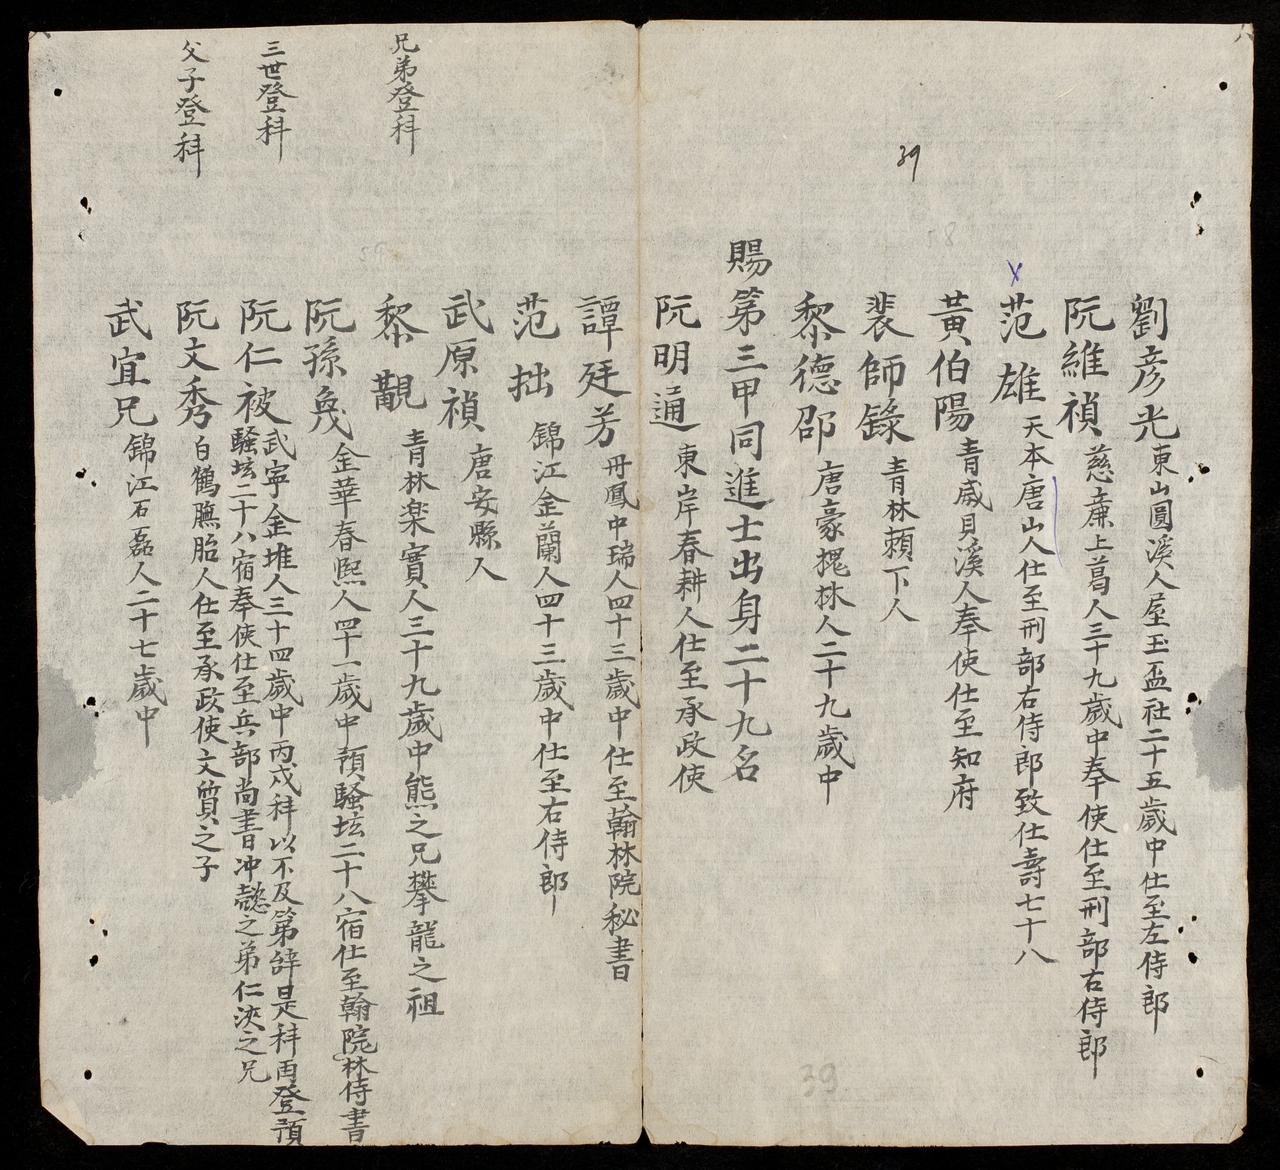 39
58
劉彥光東山圓溪人屋玉盃社二十五歲中仕至左侍郎
阮維禎慈廉上葛人三十九歲中奉使仕至刑部右侍郎
x
范雄天本唐山人仕至刑部右侍郎致仕壽七十八
黃伯陽青威貝溪人奉使仕至知府
裴師錄青林賴下人
黎德邵唐豪㮙林人二十九歲中
賜第三甲同進士出身二十九名
阮明通東岸春耕人仕至承政使
譚廷芳丹鳳中瑞人四十三歲中仕至翰林院秘書
范拙錦江金蘭人四十三歲中仕至右侍郎
武原禎唐安縣人
兄弟登科
黎覯青林楽實人三十九歲中熊之兄攀龍之祖
59
阮孫奐金華春熈人四十一歲中預騷坛二十八宿仕至翰院林侍書
三世登科
阮仁被武寜金堆人三十四歲中丙戌科以不及第辞是科再登預
騷坛二十八宿奉使仕至兵部尚書冲懿之弟仁浹之兄
父子登科
阮文秀白鶴膴胎人仕至承政使文質之子
武宜兄錦江石磊人二十七歲中
39